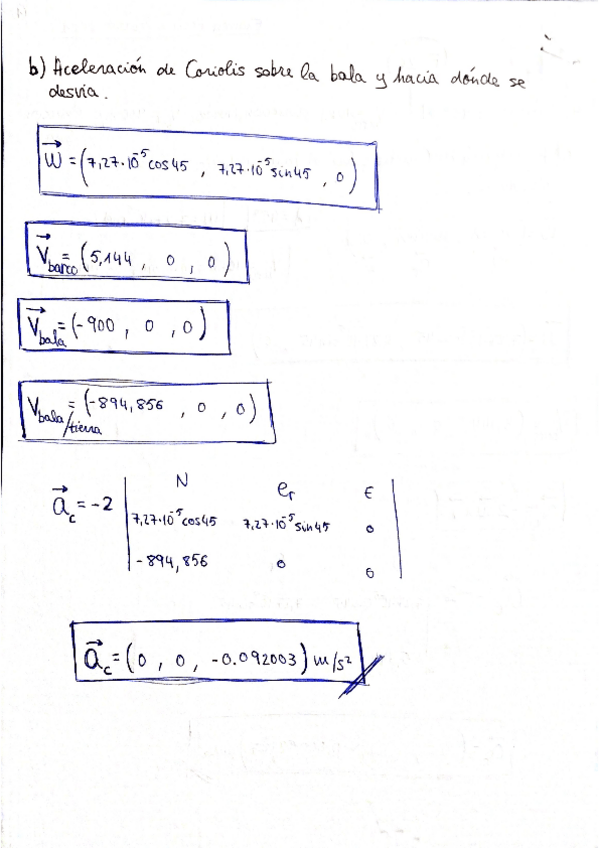 b) Aceleración de Coriolis sobre la bala y hacia dónde se
desvía.
w⃗ = (7,27·10⁻⁵cos45 , 7,27·10⁻⁵sin45 , 0)
V⃗barco = (5,144 , 0 , 0)
V⃗bala = (-900 , 0 , 0)
Vbala/tierra = (-894,856 , 0 , 0)
a⃗c = -2 | N er E |
| 7,27·10⁻⁵cos45 7,27·10⁻⁵sin45 0 |
| -894,856 0 0 |
a⃗c = (0 , 0 , -0.092003) m/s²